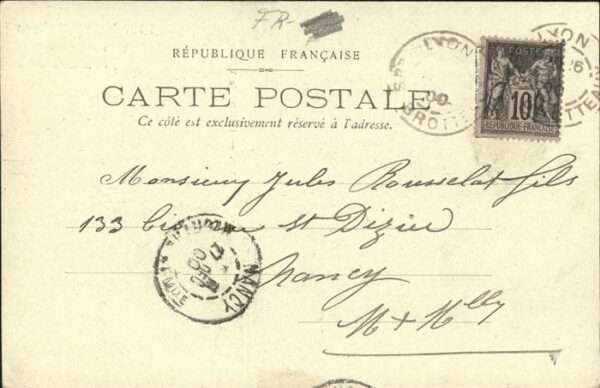 FR-
RÉPUBLIQUE FRANÇAISE
CARTE POSTALE
Ce côté est exclusivement réservé à l'adresse.
LYON
BROTTE
00
LYON
26
10
RÉPUBLIQUE FRANÇAISE
Monsieur Jules Rousselot fils
133 St Dizier
Nancy
M & Mlle
NANCY
17
00